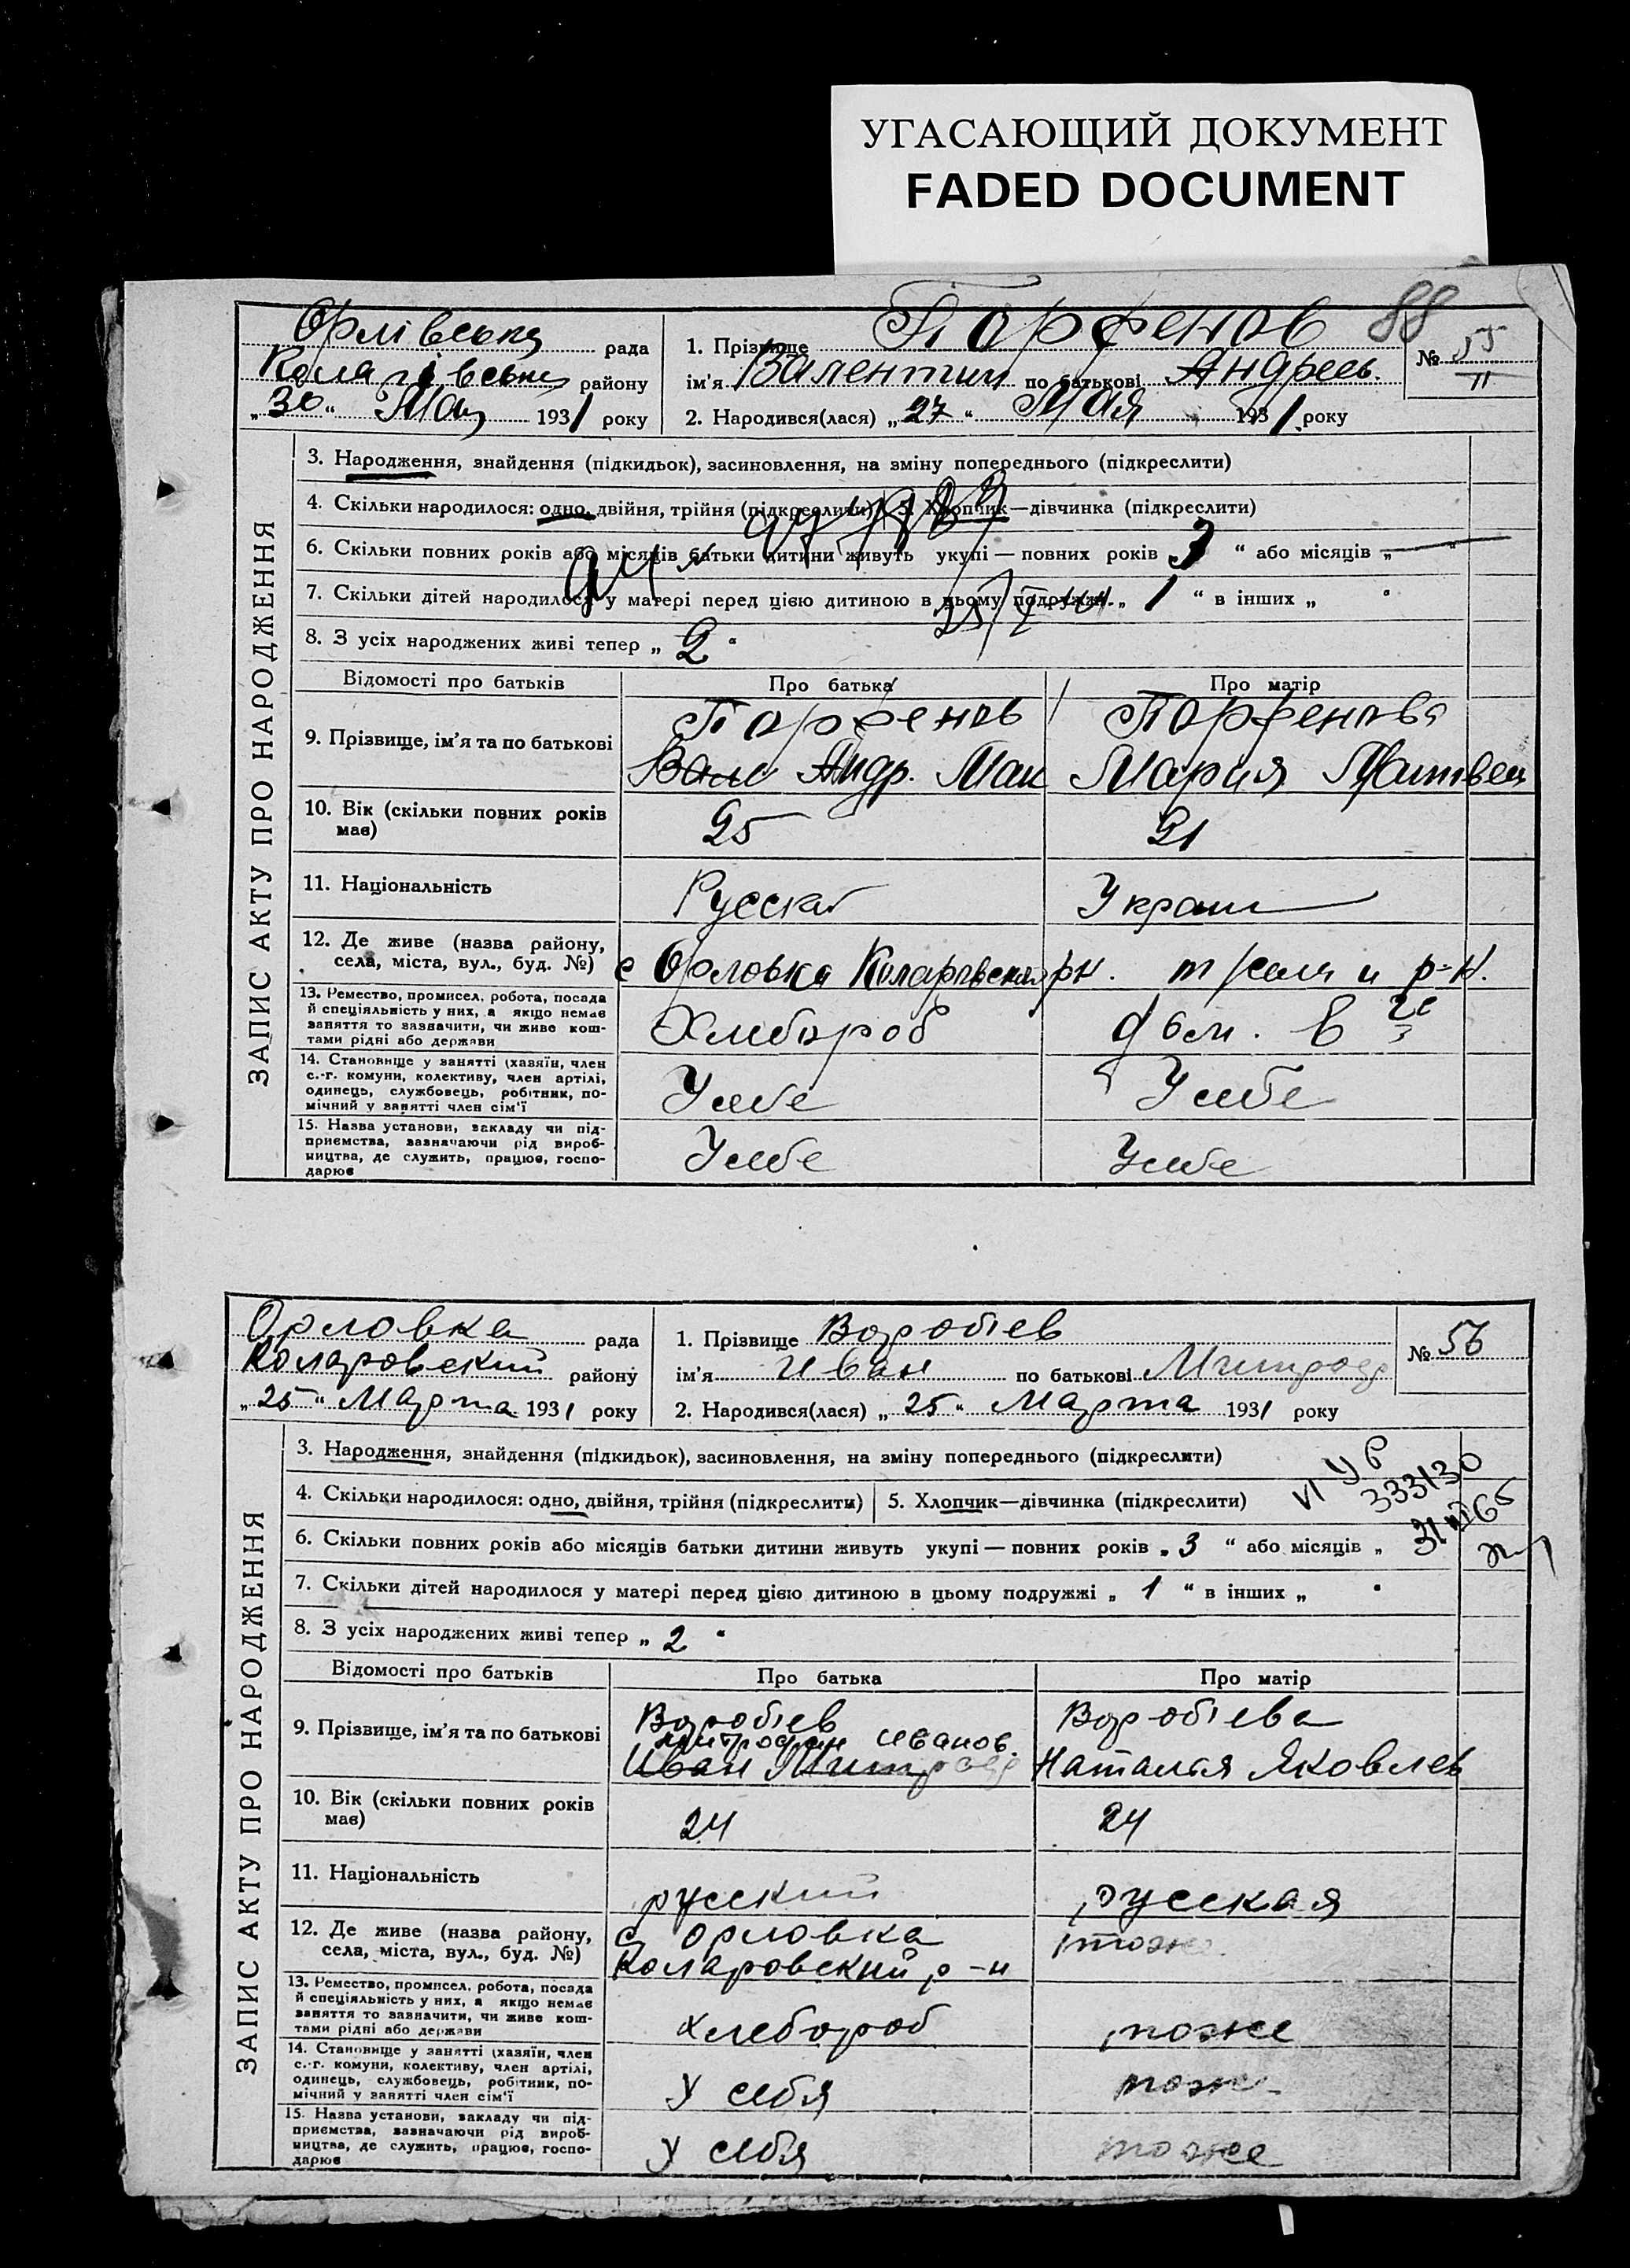 УГАСАЮЩИЙ ДОКУМЕНТ
FADED DOCUMENT
88
Орлівська рада
району
„30“ Мая 1931 року
1. Прізвище Парфенов
ім'я Валентин по батькові Андреев.
2. Народився(лася) „27“ Мая 1931 року
№ 55
11
ЗАПИС АКТУ ПРО НАРОДЖЕННЯ
3. Народження, знайдення (підкидьок), засиновлення, на зміну попереднього (підкреслити)
4. Скільки народилося: одно, двійня, трійня (підкреслити) 5. Хлопчик—дівчинка (підкреслити)
6. Скільки повних років або місяців батьки дитини живуть укупі — повних років „3“ або місяців „—“
7. Скільки дітей народилося у матері перед цією дитиною в цьому подружжі „1“ в інших „
8. З усіх народжених живі тепер „2“
Відомості про батьків Про батька Про матір
9. Прізвище, ім'я та по батькові
Парфенов Парфенова
Андр. Мак Мария
10. Вік (скільки повних років має) 25 21
11. Національність
12. Де живе (назва району, села, міста, вул., буд. №)
с Орловка рн. р-н.
13. Ремество, промисел, робота, посада
й спеціяльність у них, а якщо немає
заняття то зазначити, чи живе кош-
тами рідні або держави
Хлебороб
14. Становище у занятті (хазяїн, член
с.-г. комуни, колективу, член артілі,
одинець, службовець, робітник, по-
мічний у занятті член сім'ї
У себе У себе
15. Назва установи, закладу чи під-
приємства, зазначаючи рід вироб-
ництва, де служить, працює, госпо-
дарює
У себе У себе
Орловка рада
Коларовский району
„25“ Марта 1931 року
1. Прізвище Воробіев
ім'я Иван по батькові
2. Народився(лася) „25“ Марта 1931 року
№ 56
ЗАПИС АКТУ ПРО НАРОДЖЕННЯ
3. Народження, знайдення (підкидьок), засиновлення, на зміну попереднього (підкреслити)
4. Скільки народилося: одно, двійня, трійня (підкреслити) 5. Хлопчик—дівчинка (підкреслити)
333130
6. Скільки повних років або місяців батьки дитини живуть укупі — повних років „3“ або місяців „
7. Скільки дітей народилося у матері перед цією дитиною в цьому подружжі „1“ в інших „
8. З усіх народжених живі тепер „2“
Відомості про батьків Про батька Про матір
9. Прізвище, ім'я та по батькові
Воробіев Воробіева
Митрофан Иванов.
Иван Наталья Яковлев
10. Вік (скільки повних років має) 24 24
11. Національність русский русская
12. Де живе (назва району, села, міста, вул., буд. №)
с Орловка тоже
Коларовский р-н
13. Ремество, промисел, робота, посада
й спеціяльність у них, а якщо немає
заняття то зазначити, чи живе кош-
тами рідні або держави
хлебороб тоже
14. Становище у занятті (хазяїн, член
с.-г. комуни, колективу, член артілі,
одинець, службовець, робітник, по-
мічний у занятті член сім'ї
У себя тоже
15. Назва установи, закладу чи під-
приємства, зазначаючи рід вироб-
ництва, де служить, працює, госпо-
дарює
У себя тоже